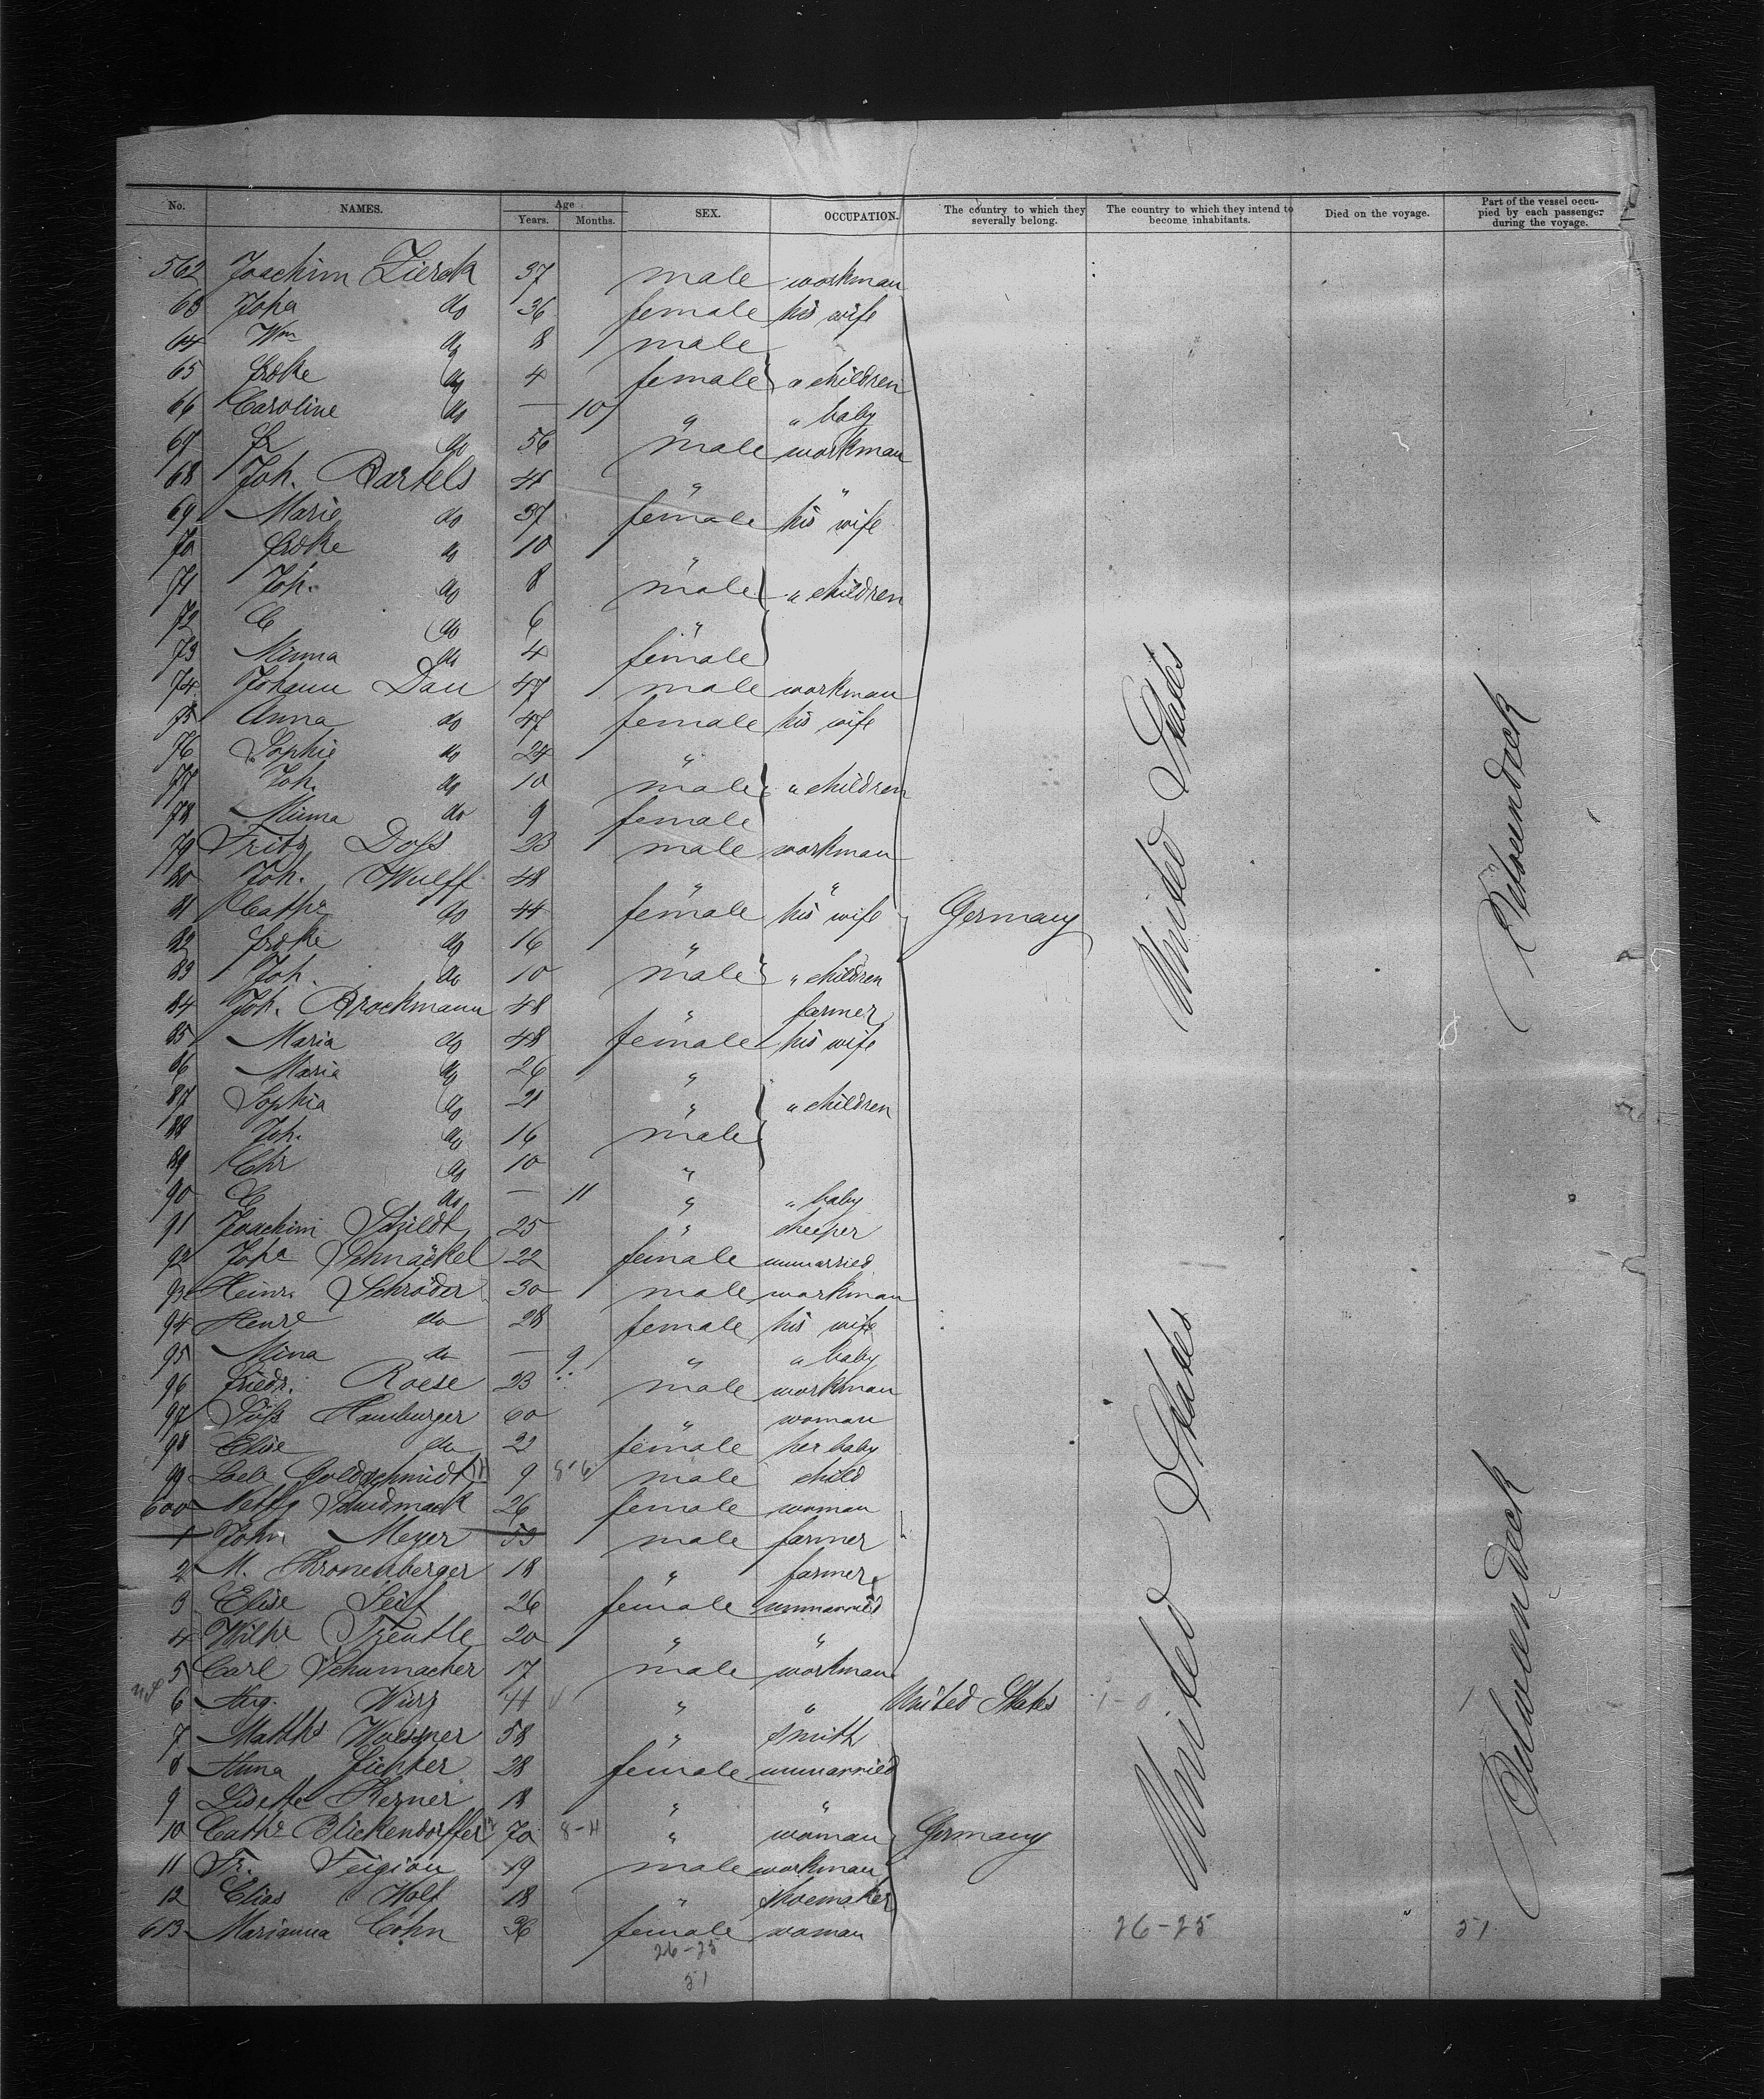 No. NAMES. Age Years. Months. SEX. OCCUPATION. The country to which they severally belong. The country to which they intend to become inhabitants. Died on the voyage. Part of the vessel occupied by each passenger during the voyage.
562 Joachim Zierck 37 male workman
63 Joha do 36 female his wife
64 Wm do 8 male
65 Fredke do 4 female " children
66 Caroline do — 10 " " baby
67 do 56 male workman
68 Joh. Bartels 41 " "
69 Marie do 37 female his wife
70 Fredke do 10 "
71 Joh. do 8 male " children
72 C do 6 "
73 Minna do 4 female
74 Johann Dau 47 male workman
75 Anna do 47 female his wife
76 Sophie do 24 "
77 Joh. do 10 male " children
78 Minna do 9 female
79 Fritz Doss 23 male workman
80 Joh. Wulff 48 " "
81 Cathe do 44 female his wife Germany United States Between deck
82 Fredke do 16 "
83 Joh. do 10 male " children
84 Joh. Brockmann 48 " farmer
85 Maria do 48 female his wife
86 Marie do 26 "
87 Sophia do 21 " " children
88 Joh. do 16 male
89 Chr do 10 "
90 C do — 11 " " baby
91 Joachim Schildt 25 "
92 Joha Schnäckel 22 female unmarried
93 Heinr. Schröder 30 male workman
94 Henre do 28 female his wife
95 Mina do — 9 " " baby
96 Friedr. Roese 23 male workman
97 Süss Hamburger 60 " woman
98 Elise do 22 female her baby
99 Goldschmidt 9 male child
600 Netty 26 female woman
1 John Meyer 53 male farmer
2 M. Kronenberger 18 " farmer
3 Elise 26 female unmarried
4 Wilhe 20 " "
5 Carl Schumacher 17 male workman
6 Aug. Wirz 41 " " United States 1-0 1
7 Matths Woessner 58 " smith
8 Anna Fichter 28 female unmarried
9 Lisette Kerner 18 " "
10 Cathe Blickendorffer 70 8-11 " woman Germany United States Between deck
11 Fr. Feigion 19 male workman
12 Elias Wolf 18 " shoemaker
613 Marianna Cohn 36 female woman
26-25 26-25 51
51